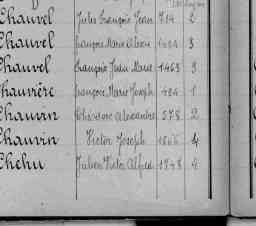 Chauvel Jules François Jean 714 2
Chauvel François Marie 1424 3
Chauvel François Jean Marie 1463 3
Chauvière François Marie Joseph 424 1
Chauvin Théodore Alexandre 578 2
Chauvin Victor Joseph 1866 4
Chehu Julien Victor Alfred 1848 4